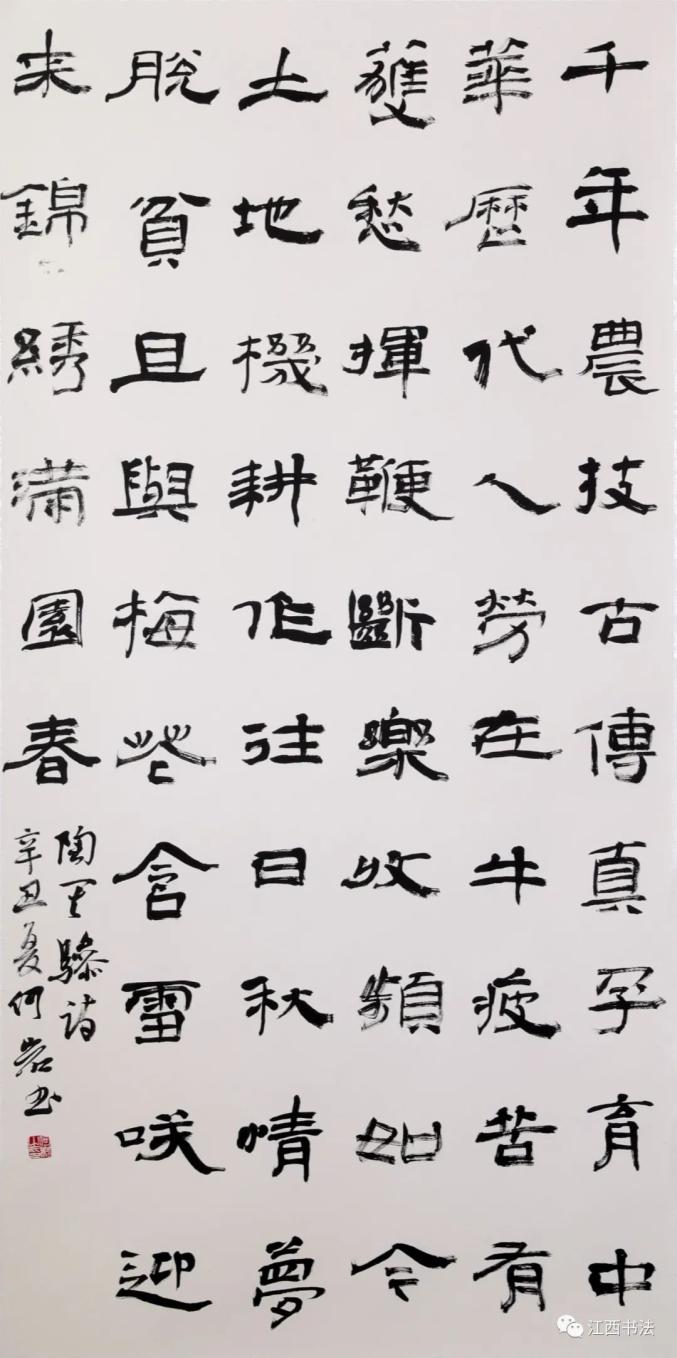 千年農技古傳真孕育中
華歷代人勞在牛疲苦有
愁揮鞭斷樂收頻如今
土地機耕作往日秋情夢
脫貧且與梅花含雪咲迎
来錦綉滿園春
陶驂詩
辛丑夏何岩书
江西书法